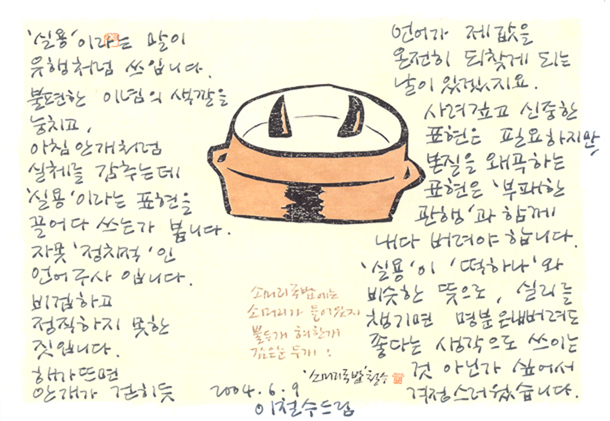 '실용'이라는 말이
유행처럼 쓰입니다.
불편한 이념의 색깔을
눙치고,
아침 안개처럼
실체를 감추는데
'실용'이라는 표현을
끌어다 쓰는가 봅니다.
자못 '정치적'인
언어구사 입니다.
비겁하고
정직하지 못한
짓입니다.
해가 뜨면
안개가 걷히듯
언어가 제값을
온전히 되찾게 되는
날이 있겠지요.
사려깊고 신중한
표현은 필요하지만,
본질을 왜곡하는
표현은 '부패한
관행'과 함께
내다 버려야 합니다.
'실용'이 '떡하나'와
비슷한 뜻으로, 실리를
챙기면 명분은 버려도
좋다는 생각으로 쓰이는
것 아닌가 싶어서
걱정스러웠습니다.
소머리국밥에는
소머리가 들어있는지
뿔 두개 혀 한개
검은 눈 두개!
'소머리국밥' 철수
2004.6.9
이철수드림